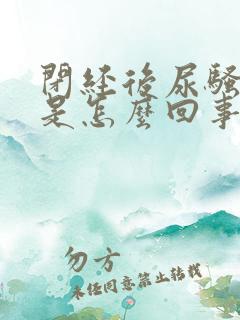 閉經後尿騷
是怎麼回事
勿方
未經同意禁止轉載